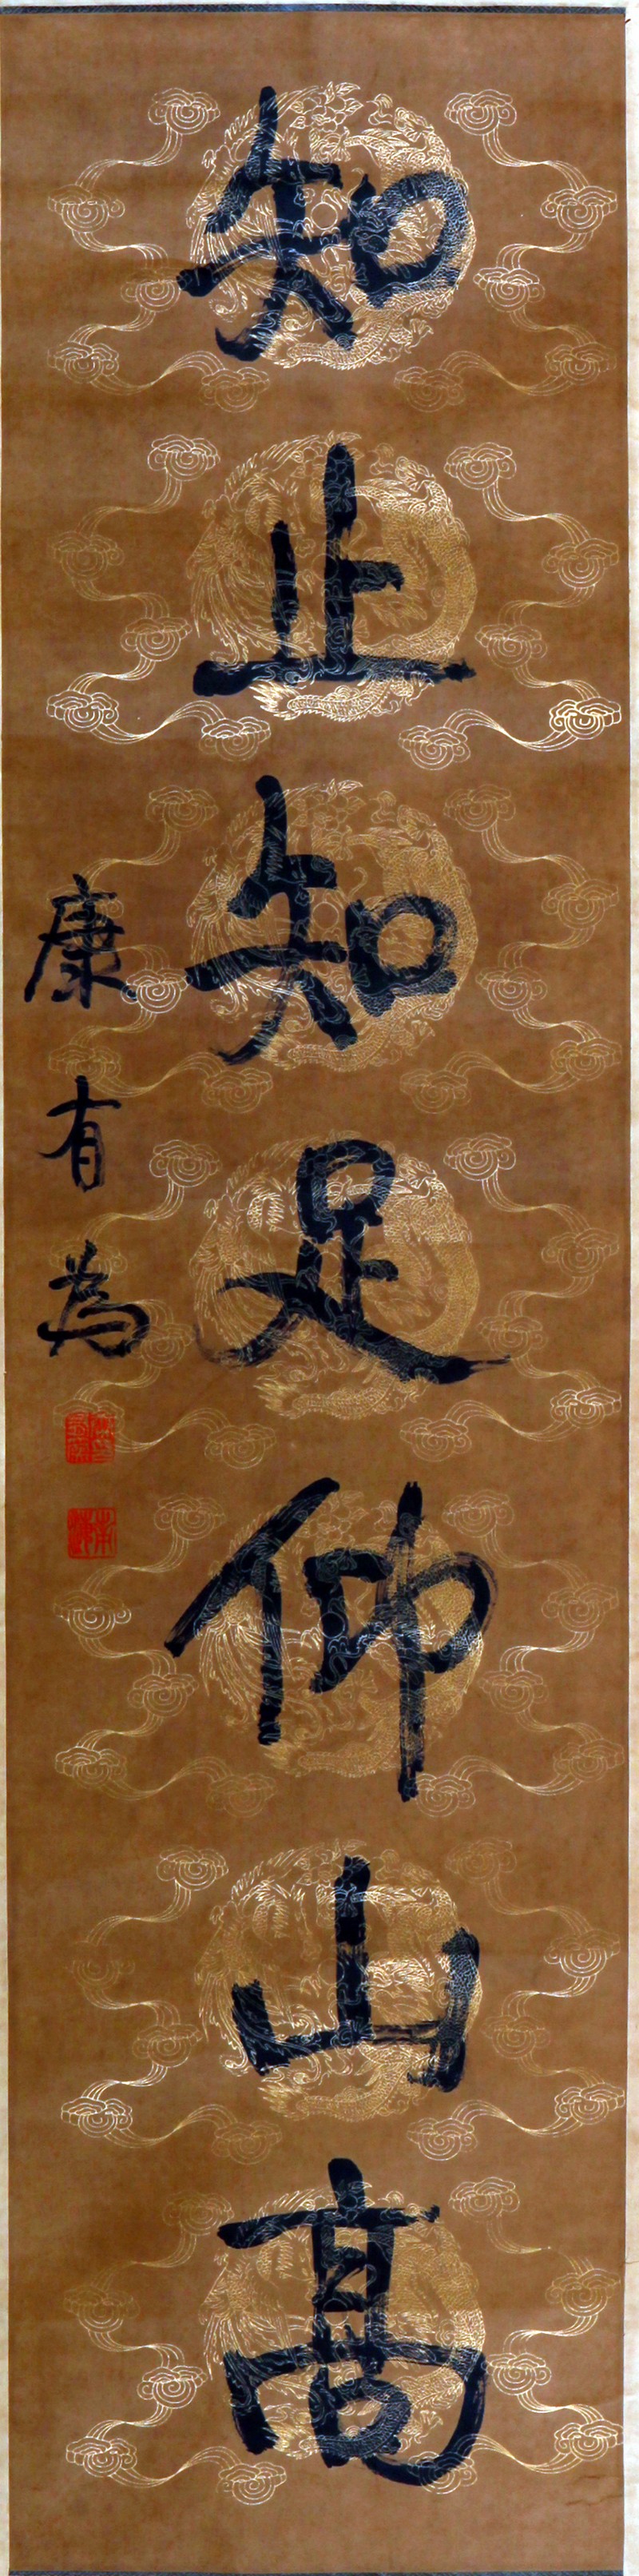 知止知足仰山髙
康有為